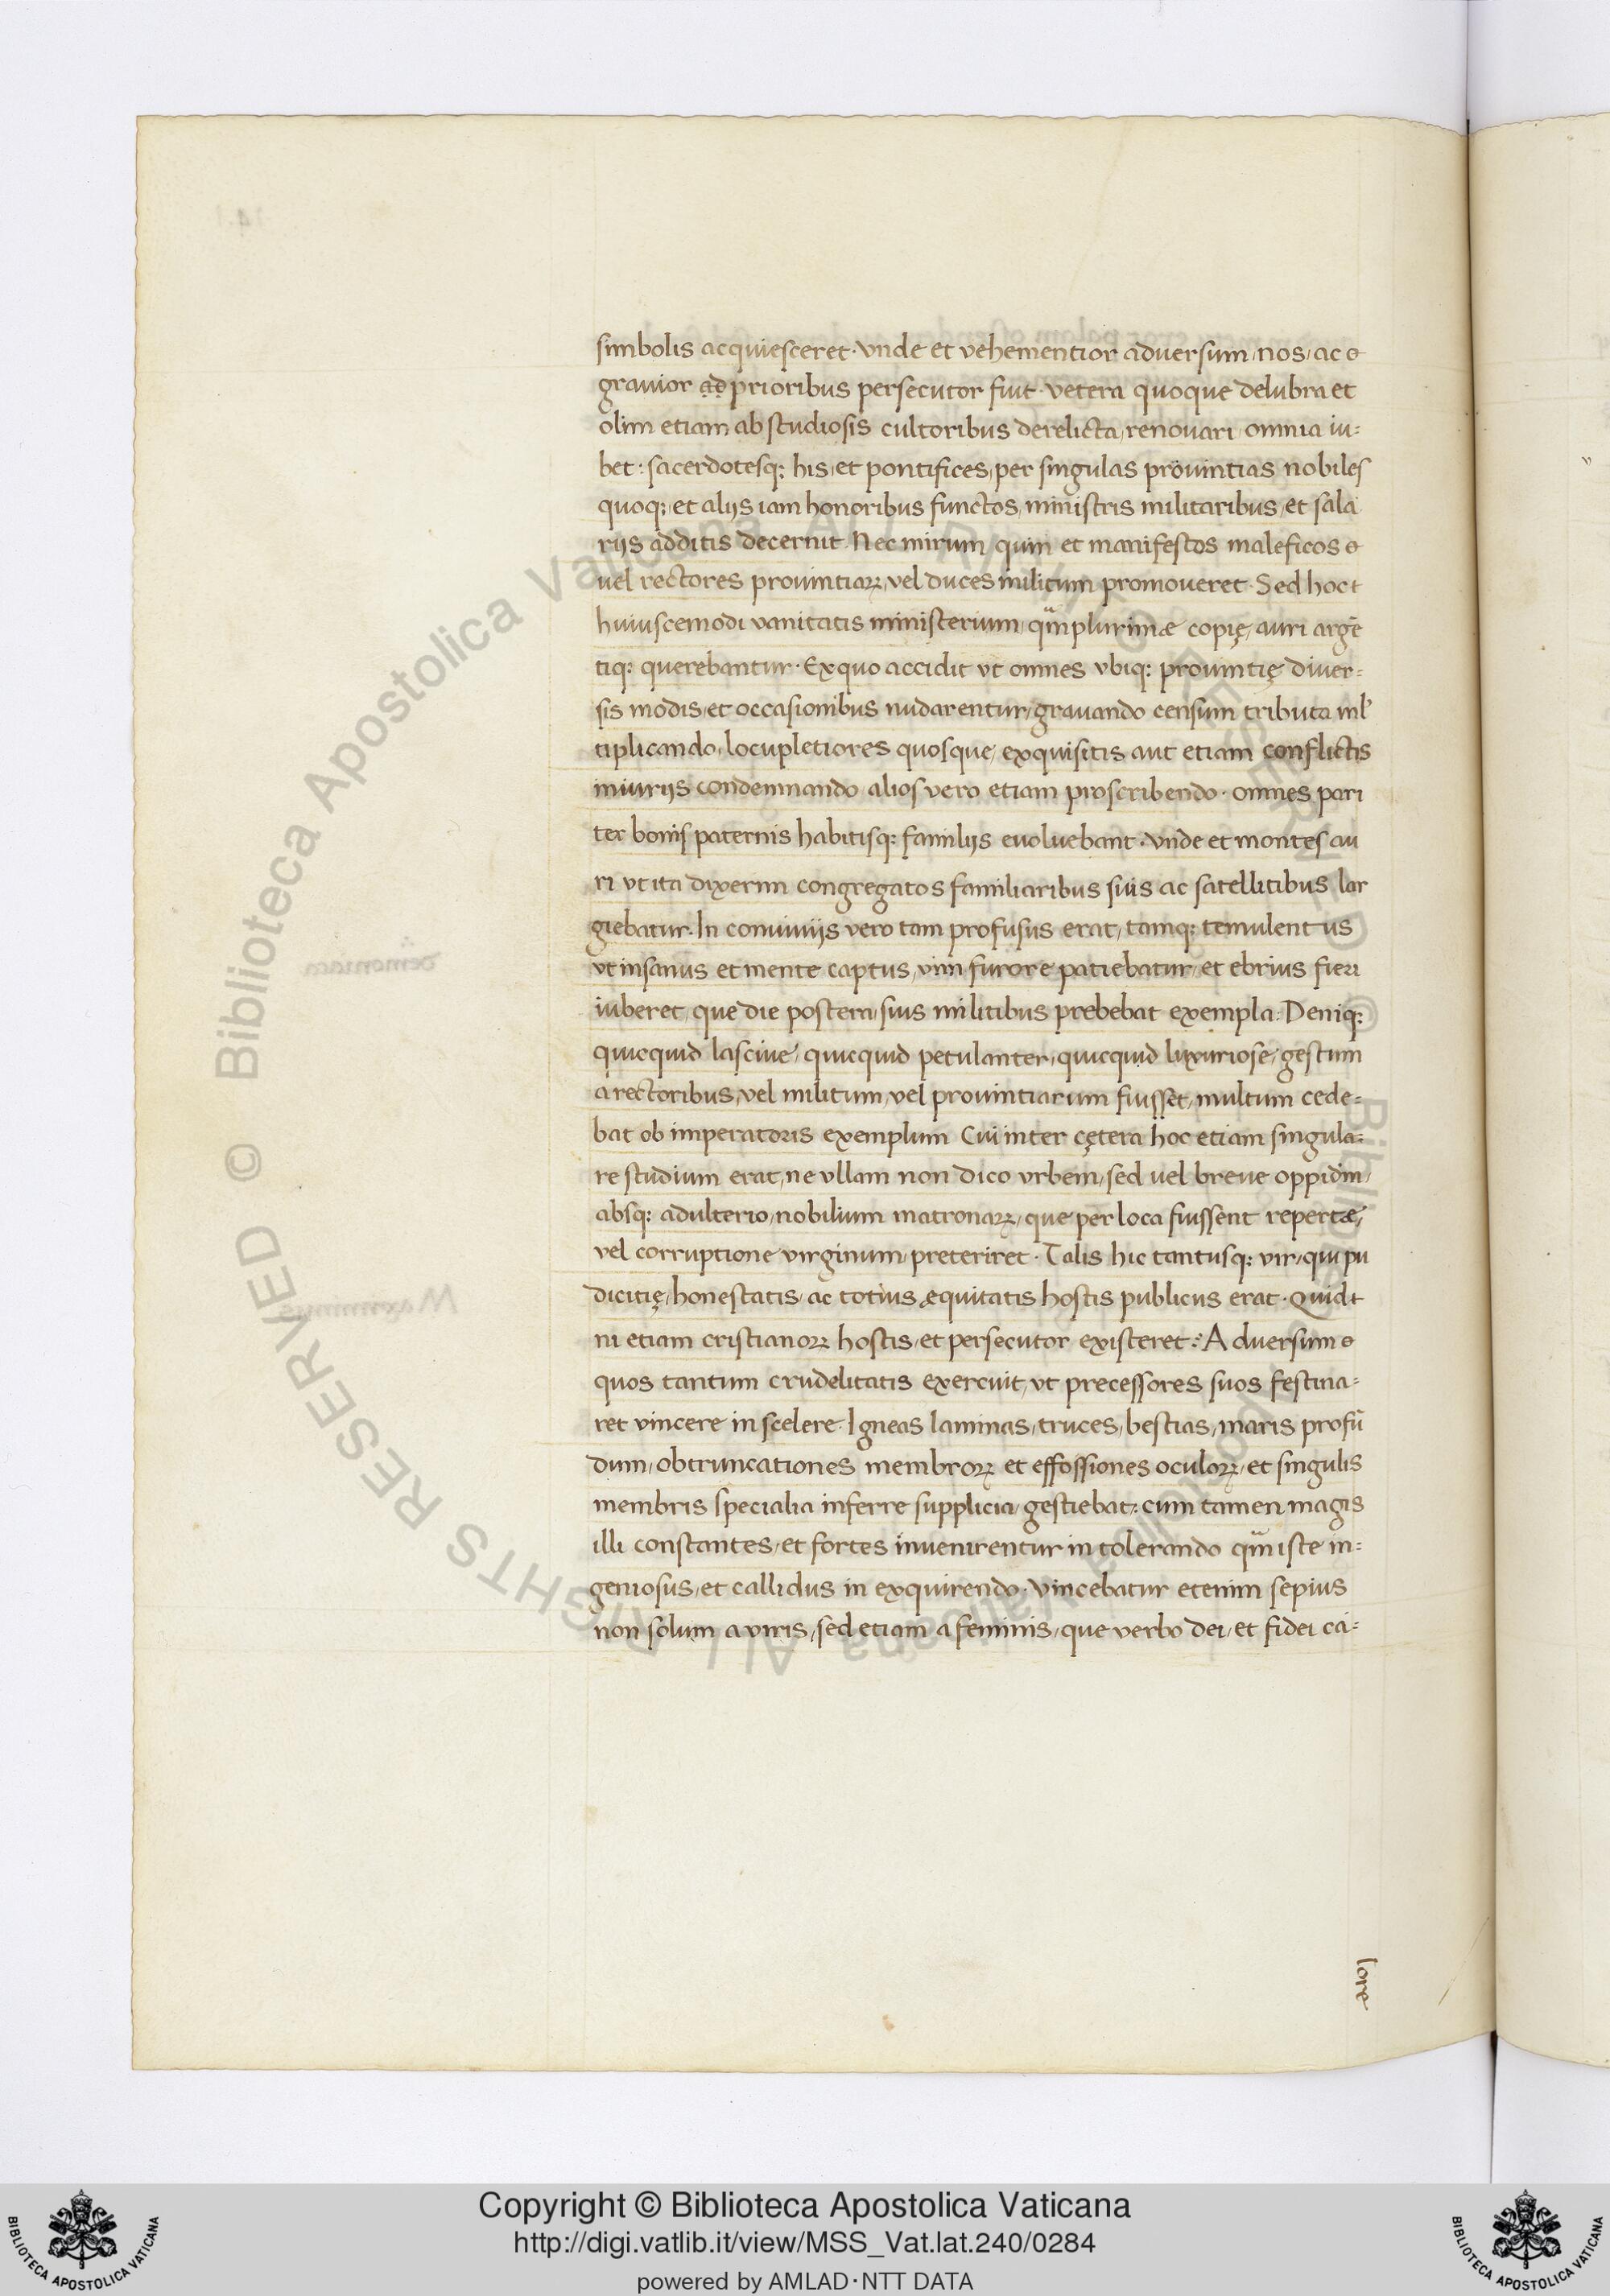 simbolis acquiesceret · vnde et vehementior aduersum, nos, ac
grauior ad prioribus persecutor fuit · vetera quoque delubra et
olim etiam ab studiosis cultoribus derelicta, renouari omnia iu=
bet : sacerdotesq; his, et pontifices, per singulas prouintias nobiles
quoq; et alijs iam honoribus functos, ministris militaribus, et sala
rijs additis decernit. Nec mirum, quin et manifestos maleficos
uel rectores prouintiaꝝ, vel duces militum promoueret · Sed hoc
huiuscemodi vanitatis ministerium, qm̃ plurimæ copię, auri argē
tiq; querebantur · Ex quo accidit vt omnes vbiq; prouintię diuer=
sis modis, et occasionibus nudarentur, grauando censum tributa ml'
tiplicando, locupletiores quosque, exquisitis aut etiam conflictis
iniurijs condemnando alios vero etiam proscribendo · omnes pari
ter bonis paternis habitisq; familijs euoluebant · vnde et montes au
ri vt ita dixerim congregatos familiaribus suis ac satellitibus lar
giebatur. In conuiuijs vero tam profusus erat, tamq; temulentus
vt insanus et mente captus, vim furore patiebatur, et ebrius fieri
iuberet, que die postera, suis militibus prebebat exempla. Deniq;
quicquid lasciue, quicquid petulanter, quicquid luxuriose, gestum
a rectoribus, vel militum, vel prouintiarum fuisset, multum cede=
bat ob imperatoris exemplum Cui inter cętera hoc etiam singula=
re studium erat, ne vllam non dico vrbem, sed uel breue oppidm,
absq; adulterio, nobilium matronaꝝ, que per loca fuissent repertæ,
vel corruptione virginum, preteriret · Talis hic tantusq; vir, qui pu
dicitię, honestatis, ac totius ęquitatis hostis publicus erat · Quid
ni etiam cristianoꝝ hostis, et persecutor existeret : Aduersum
quos tantum crudelitatis exercuit, vt precessores suos festina=
ret vincere in scelere. Igneas laminas, truces, bestias, maris profū
dum, obtruncationes membroꝝ et effossiones oculoꝝ, et singulis
membris specialia inferre supplicia, gestiebat : cum tamen magis
illi constantes, et fortes inuenirentur in tolerando qm̃ iste in=
geniosus, et callidus in exquirendo · vincebatur etenim sepius
non solum a viris, sed etiam a feminis, que verbo dei, et fidei ca=
lore
Copyright © Biblioteca Apostolica Vaticana
http://digi.vatlib.it/view/MSS_Vat.lat.240/0284
powered by AMLAD·NTT DATA
BIBLIOTECA APOSTOLICA VATICANA
BIBLIOTECA APOSTOLICA VATICANA
© Biblioteca Apostolica Vaticana ALL RIGHTS RESERVED